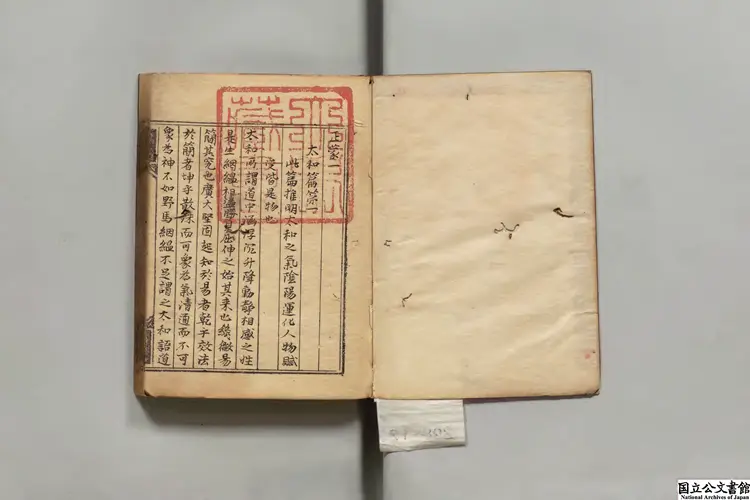 正蒙一
太和篇第一
此篇推明太和之氣陰陽運化人物賦
受皆是物也
太和所謂道中涵浮沉升降動靜相感之性
是生絪縕相盪勝負屈伸之始其來也幾微易
簡其究也廣大堅固起知於易者乾乎效法
於簡者坤乎散殊而可象為氣清通而不可
象為神不如野馬絪縕不足謂之太和語道
国立公文書館
National Archives of Japan